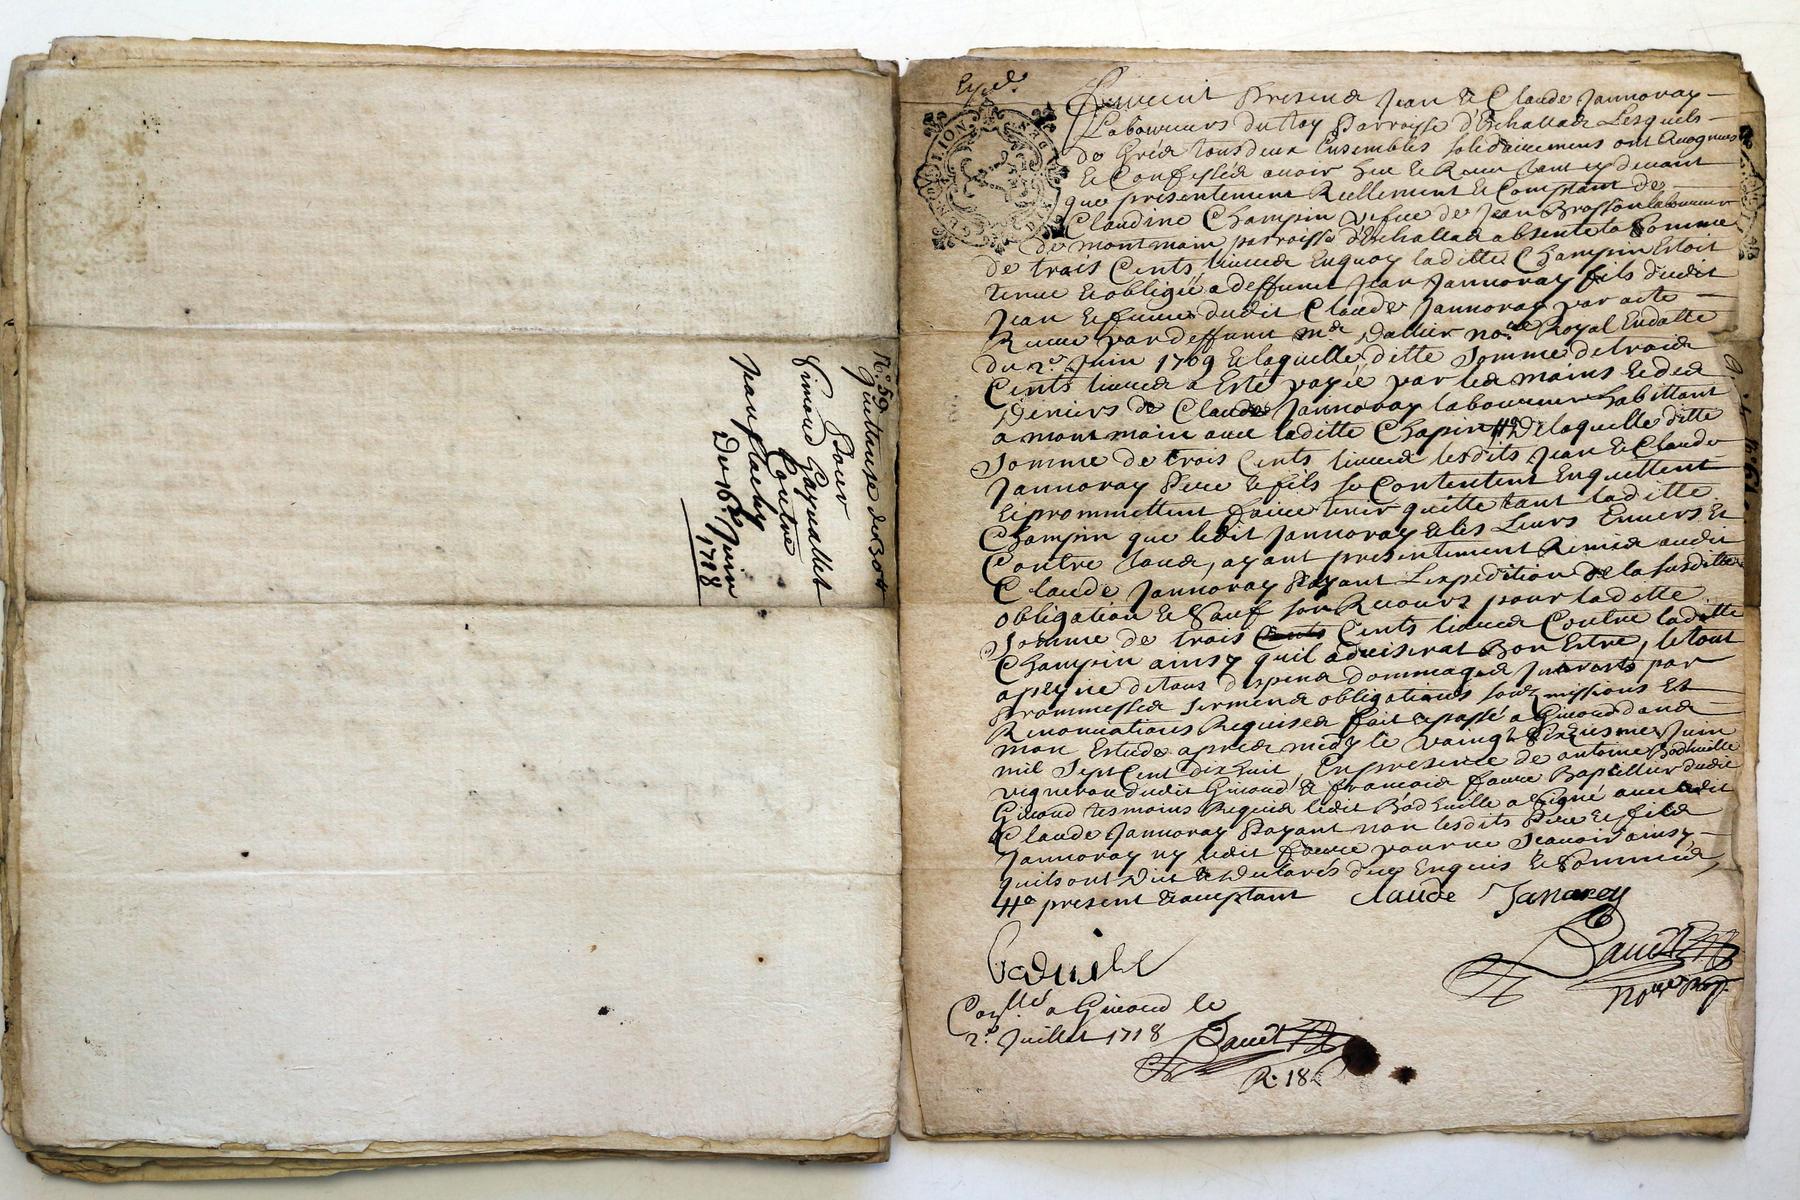 N.° 59
Quittance de 130 #
Pour
Simond Gayvallet
Contre
Jean flachy
Du 16.e Juin
1718
Exped.
Furent Presend Jean & Claude Jannoray
Laboureurs du Roy Parroisse d'Eschallad Lesquels
de Gréd tous deux Ensembles solidairement ont Recognus
& Confesséd avoir heu & Receu tant cy devant
que presentement Reellement & Comptant de
Claudine Champin vefue de Jean Brosson laboureur
de montmain parroisse d'Eschallad absente la Somme
de trois Cents liured Enquoy laditte Champin Estoit
tenue & obligée a deffunt Jean Jannoray fils dudit
Jean & frere dudit Claude Jannoray par acte
Receu par deffunt me. Dallier no.re Royal En datte
du 2.e Juin 1709 & laquelle ditte Somme de troid
Cents liured a Esté payée par led maind & ded
deniers de Claude Jannoray laboureur habittant
a montmain auec laditte Chapin # De laquelle ditte
Somme de trois Cents liured lesdits Jean & Claude
Jannoray Pere & fils se Contentent En quittent
& promettent faire tenir quitte tant laditte
Champin que ledit Jannoray & les Leurs Enuers Et
Contre toud, ayant presentement Remid audit
Claude Jannoray Payant L'expedition de la susditte
obligation & Sauf son Recours pour laditte
Somme de trois Cents Cents liured Contre laditte
Champin ainsy quil aduiserat Bon Estre, le tout
a peyne de tous despend dommaged Interests par
Promessed sermend obligations soubzmissions Et
Renonciations Requised fait & passé a Giuord dand
mon Estude apred midy le vaingt Juin
mil Sept Cent dix huit, En presence de antoine Baduille
vigneron dudit Giuord & francoid faure Baptellier dudit
Giuord tesmoins Requid ledit Baduille a Signé auec ledit
Claude Jannoray Payant non lesdits Pere & fild
Jannoray ny ledit faure pour ne Scauoir ainsy
quils ont Dit & Declarés de ce Enquis & Sommés
# present & acceptant Claude Janarey
Baduile
No.re Roy.
Con.llé a Giuord le
2.e Juillet 1718
R. 18